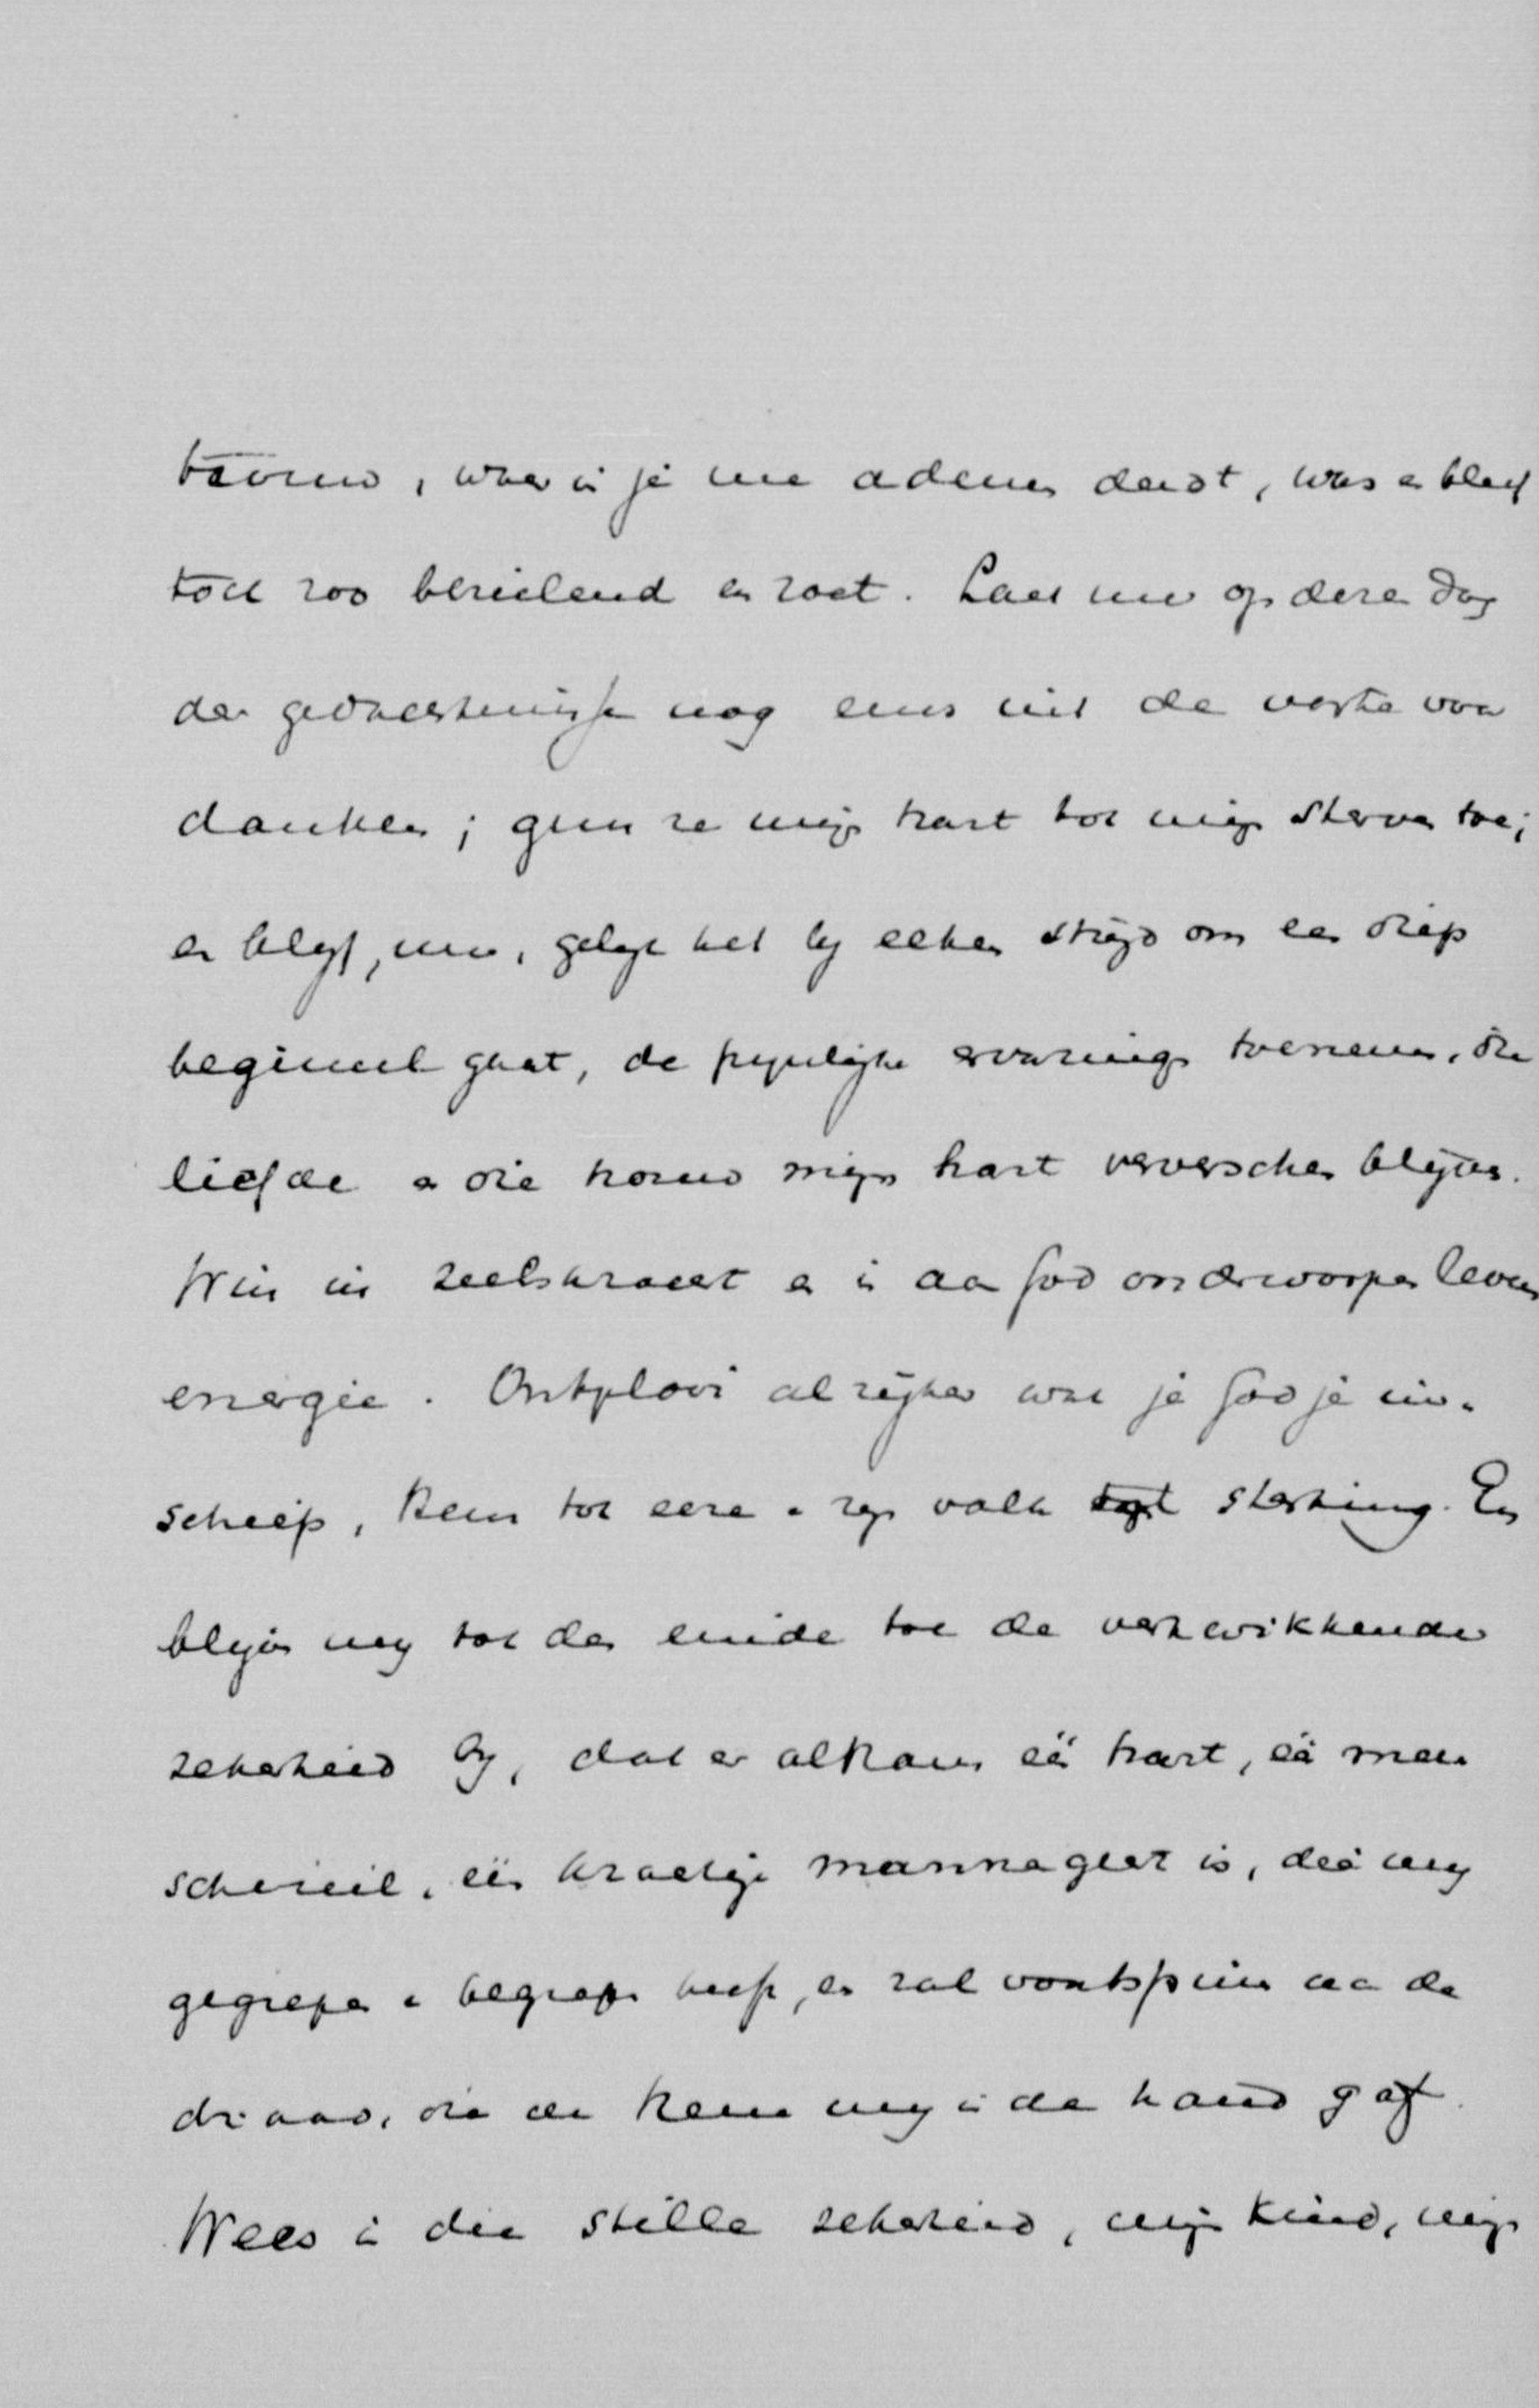 trouw, waarin je me ademen deedt, was en bleef
toch zoo bezielend en zoet. Laat me op dezen dag
der gedachtenisse nog eens uit de verte voor
danken; gun ze mijn hart tot mijn sterven toe;
en blijf, me, gelijk het bij elken strijd om een diep
beginsel gaat, de pijnlijke ervaring toenemen, die
liefde en die trouw mijn hart ververschen blijven.
Win in zielskracht en in aan God onderworpen levens
energie. Ontplooi al rijker wat je God je in-
schiep, Hem tot eere en zijn volk tot sterking. En
blijve mij tot den einde toe de verkwikkende
zekerheid bij, dat er althans één hart, één men
schenziel, één krachtige mannagest is, die mij
gegrepen en begrepen heeft, en zal voortspinnen aan de
draad, die de Heere mij in de hand gaf.
Wees in die stille zekerheid, mijn kind, mijn